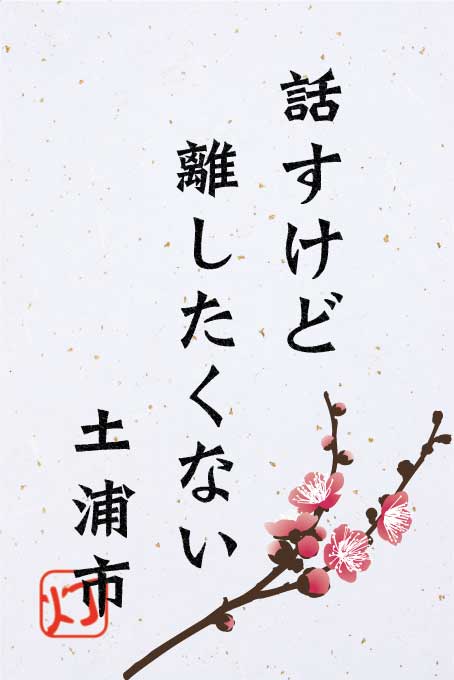 話すけど
離したくない
土浦市
灯